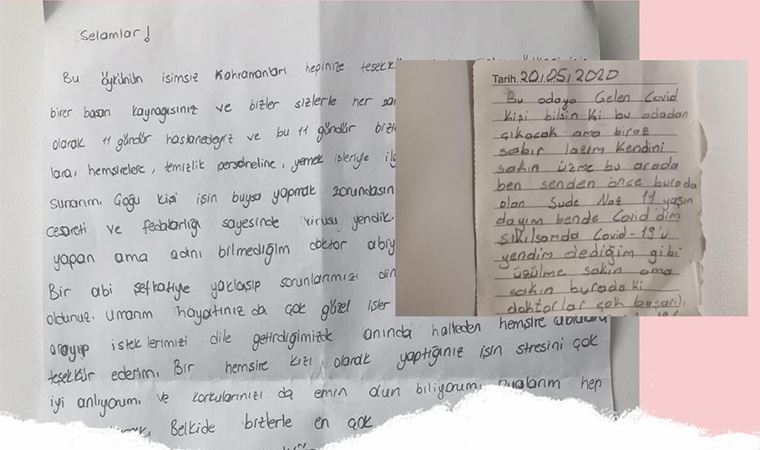 Selamlar!
Bu öykünün isimsiz Kahramanları hepinize teşekk
birer başarı kaynağısınız ve bizler sizlerle her
olarak 11 gündür hastanedeyiz ve bu 11 gündür
lara, hemşirelere, temizlik personeline, yemek işleriyle
sunarım. Çoğu kişi işin buysa yapmak zorundasın
cesareti ve fedakarlığı sayesinde virüsü yendik.
yapan ama adını bilmediğim doktor abiy
Bir abi şefkatiyle yaklaşıp sorunlarımızı din
oldunuz. Umarım hayatınız da çok güzel işler
arayıp isteklerimizi dile getirdiğimizde anında halleden hemşire ablalara
teşekkür ederim. Bir hemşire kızı olarak yaptığınız işin stresini çok
iyi anlıyorum. Ve korkularınızı da emin olun biliyorum. Dualarım hep
Belkide bizlerle en çok
Tarih. 20/05/2020
Bu odaya Gelen Covid
Kişi bilsin ki bu odadan
çıkacak ama biraz
sabır lazım Kendini
sakın üzme bu arada
ben senden önce burada
olan Sude Naz 11 yaşın
dayım bende Covid'dim
sıkılsamda Covid-19'u
yendim dediğim gibi
üzülme sakin ama
sakın buradaki
doktorlar çok başarılı